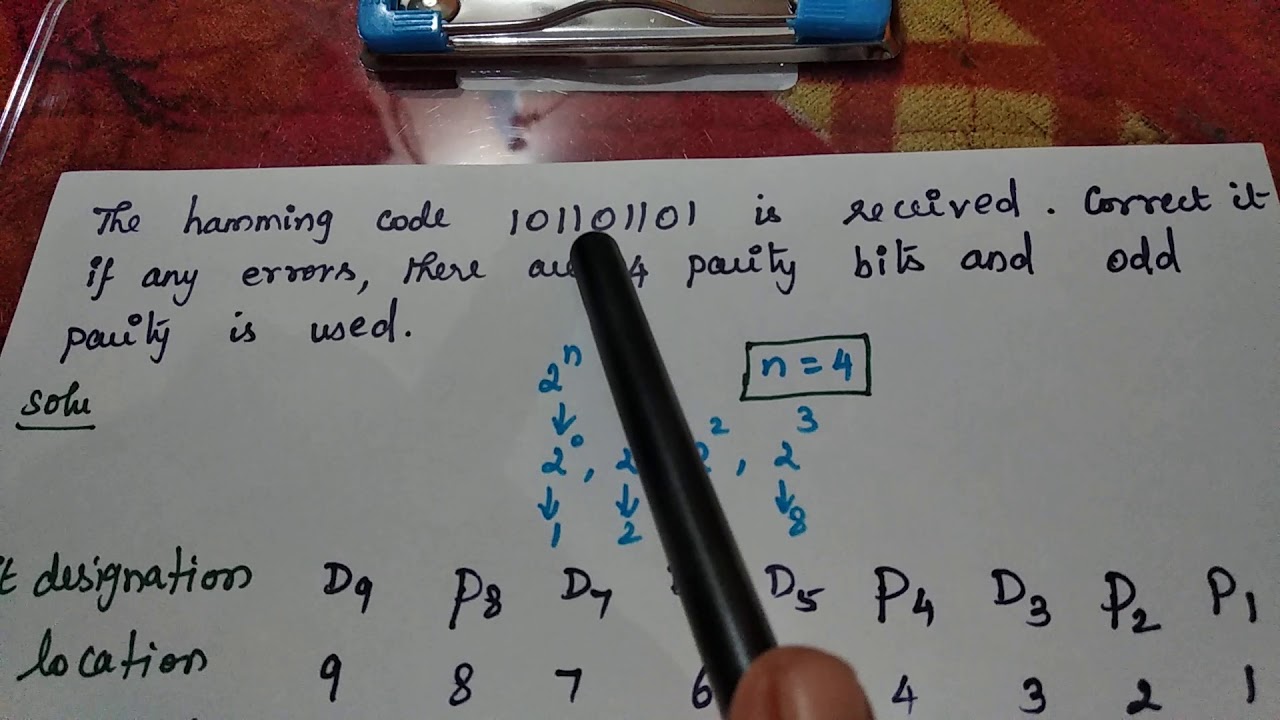 The hamming code 101101101 is received. Correct it
if any errors, there 4 parity bits and odd
parity is used.
Solu
2ⁿ n = 4
↓
2⁰, 2 2, 2³
↓ ↓ ↓
1 2 8
designation D9 P8 D7 D5 P4 D3 P2 P1
location 9 8 7 6 4 3 2 1